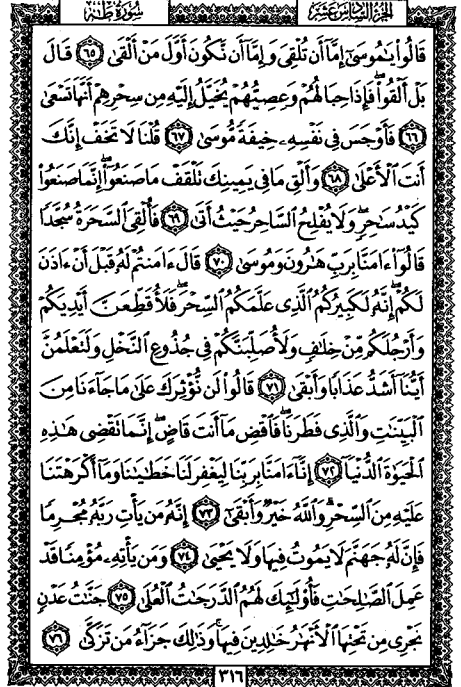 الجزء السادس عشر سورة طه
قَالُوا۟ يَـٰمُوسَىٰٓ إِمَّآ أَن تُلْقِىَ وَإِمَّآ أَن نَّكُونَ أَوَّلَ مَنْ أَلْقَىٰ ٦٥ قَالَ
بَلْ أَلْقُوا۟ ۖ فَإِذَا حِبَالُهُمْ وَعِصِيُّهُمْ يُخَيَّلُ إِلَيْهِ مِن سِحْرِهِمْ أَنَّهَا تَسْعَىٰ
٦٦ فَأَوْجَسَ فِى نَفْسِهِۦ خِيفَةً مُّوسَىٰ ٦٧ قُلْنَا لَا تَخَفْ إِنَّكَ
أَنتَ ٱلْأَعْلَىٰ ٦٨ وَأَلْقِ مَا فِى يَمِينِكَ تَلْقَفْ مَا صَنَعُوٓا۟ ۖ إِنَّمَا صَنَعُوا۟
كَيْدُ سَـٰحِرٍ ۖ وَلَا يُفْلِحُ ٱلسَّاحِرُ حَيْثُ أَتَىٰ ٦٩ فَأُلْقِىَ ٱلسَّحَرَةُ سُجَّدًا
قَالُوٓا۟ ءَامَنَّا بِرَبِّ هَـٰرُونَ وَمُوسَىٰ ٧٠ قَالَ ءَامَنتُمْ لَهُۥ قَبْلَ أَنْ ءَاذَنَ
لَكُمْ ۖ إِنَّهُۥ لَكَبِيرُكُمُ ٱلَّذِى عَلَّمَكُمُ ٱلسِّحْرَ ۖ فَلَأُقَطِّعَنَّ أَيْدِيَكُمْ
وَأَرْجُلَكُم مِّنْ خِلَـٰفٍ وَلَأُصَلِّبَنَّكُمْ فِى جُذُوعِ ٱلنَّخْلِ وَلَتَعْلَمُنَّ
أَيُّنَآ أَشَدُّ عَذَابًا وَأَبْقَىٰ ٧١ قَالُوا۟ لَن نُّؤْثِرَكَ عَلَىٰ مَا جَآءَنَا مِنَ
ٱلْبَيِّنَـٰتِ وَٱلَّذِى فَطَرَنَا ۖ فَٱقْضِ مَآ أَنتَ قَاضٍ ۖ إِنَّمَا تَقْضِى هَـٰذِهِ
ٱلْحَيَوٰةَ ٱلدُّنْيَآ ٧٢ إِنَّآ ءَامَنَّا بِرَبِّنَا لِيَغْفِرَ لَنَا خَطَـٰيَـٰنَا وَمَآ أَكْرَهْتَنَا
عَلَيْهِ مِنَ ٱلسِّحْرِ ۗ وَٱللَّهُ خَيْرٌ وَأَبْقَىٰٓ ٧٣ إِنَّهُۥ مَن يَأْتِ رَبَّهُۥ مُجْرِمًا
فَإِنَّ لَهُۥ جَهَنَّمَ لَا يَمُوتُ فِيهَا وَلَا يَحْيَىٰ ٧٤ وَمَن يَأْتِهِۦ مُؤْمِنًا قَدْ
عَمِلَ ٱلصَّـٰلِحَـٰتِ فَأُو۟لَـٰٓئِكَ لَهُمُ ٱلدَّرَجَـٰتُ ٱلْعُلَىٰ ٧٥ جَنَّـٰتُ عَدْنٍ
تَجْرِى مِن تَحْتِهَا ٱلْأَنْهَـٰرُ خَـٰلِدِينَ فِيهَا ۚ وَذَٰلِكَ جَزَآءُ مَن تَزَكَّىٰ ٧٦
٣١٦